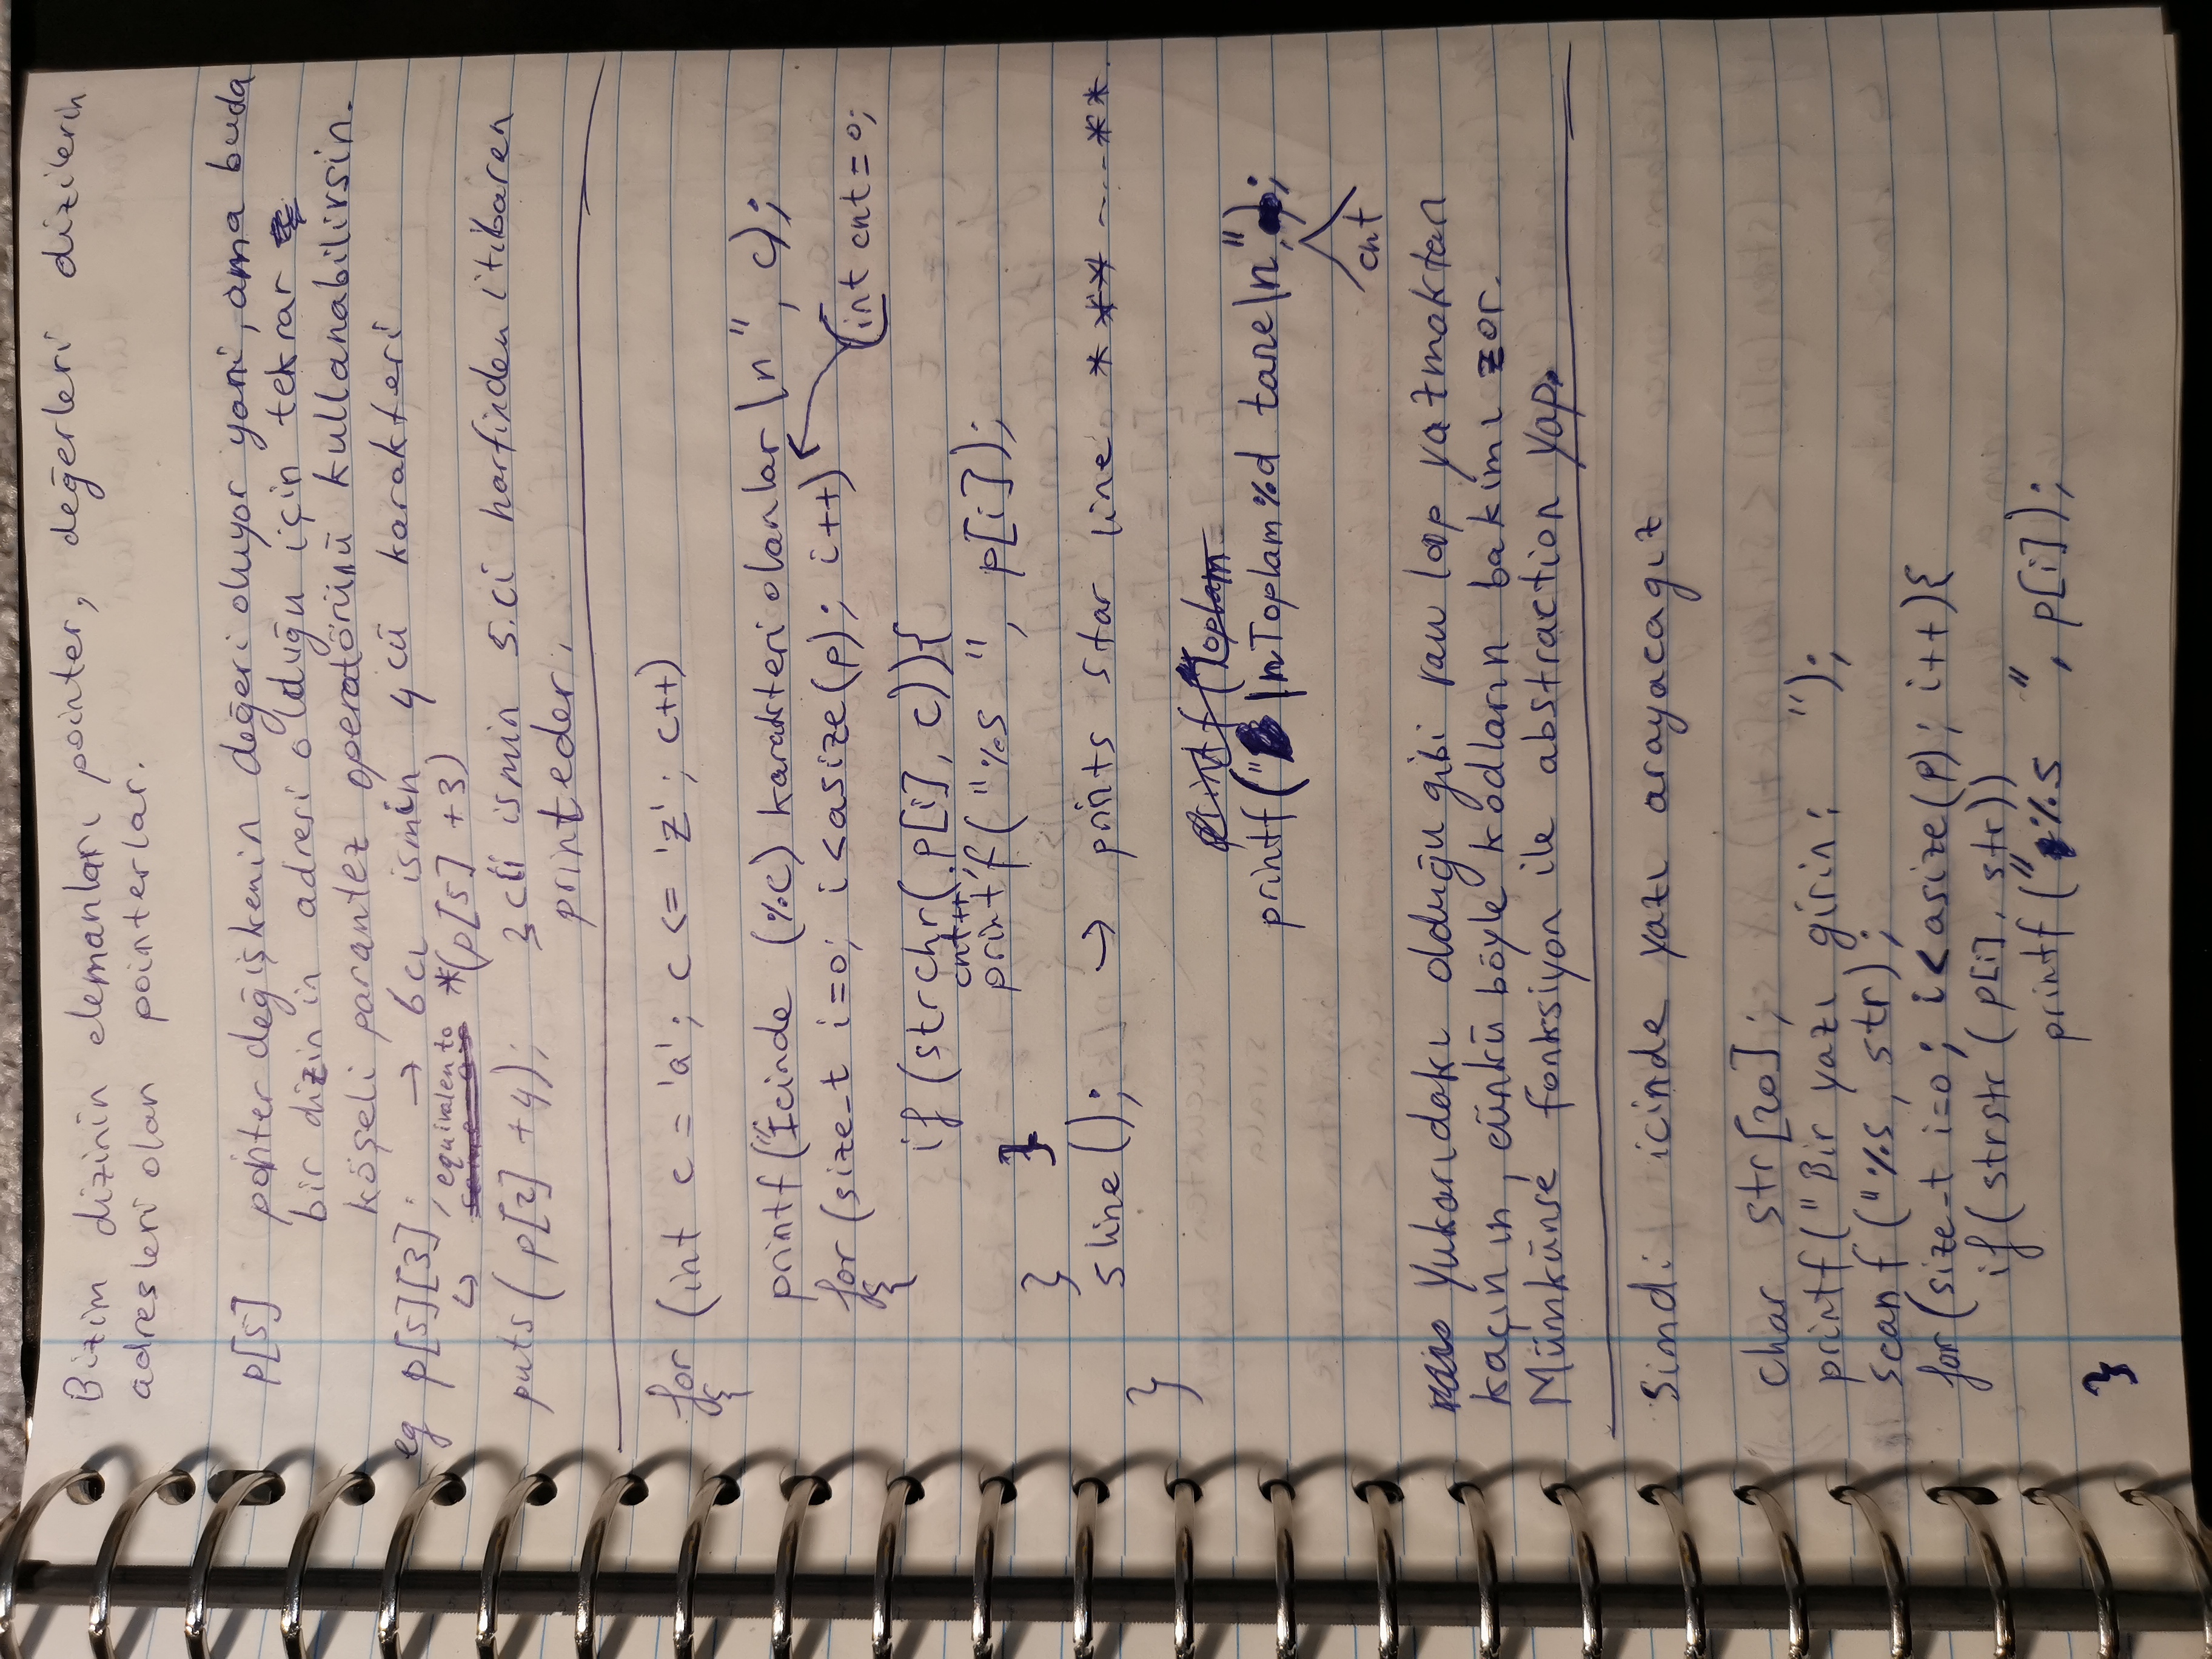 Bizim dizinin elemanları pointer, değerleri dizilerin
adresleri olan pointerlar.
p[5] pointer değişkenin değeri oluyor yani, ama buda
bir dizinin adresi olduğu için tekrar
köşeli parantez operatörünü kullanabilirsin.
eg p[5][3]; → 6cı ismin 4cü karakteri
↳ equivalen to *(p[5] +3)
same as
puts( p[2] +4); 3cü ismin 5.ci harfinden itibaren
printeder.
for (int c = 'a'; c <= 'z'; c++)
{
printf("İcinde (%c) karakteri olanlar \n", c);
for (size_t i=0; i<asize(p); i++)
int cnt = 0;
{
if (strchr( p[i], c)){
cnt++;
printf("%s ", p[i]);
}
}
sline(); → prints star line * ** ---- **
}
printf("Toplam
printf(" \nToplam %d tane\n", );
cnt
Yukarıdakı olduğu gibi raw loop yazmaktan
kaçının, cünkü böyle kodların bakimı zor.
Mümkünse fonksiyon ile abstraction yap.
Simdi icinde yazı arayacagız
char str[20];
printf("Bir yazı girin: ");
scanf("%s, str);
for(size_t i=0; i<asize(p); i++){
if(strstr(p[i], str))
printf("%s ", p[i]);
}